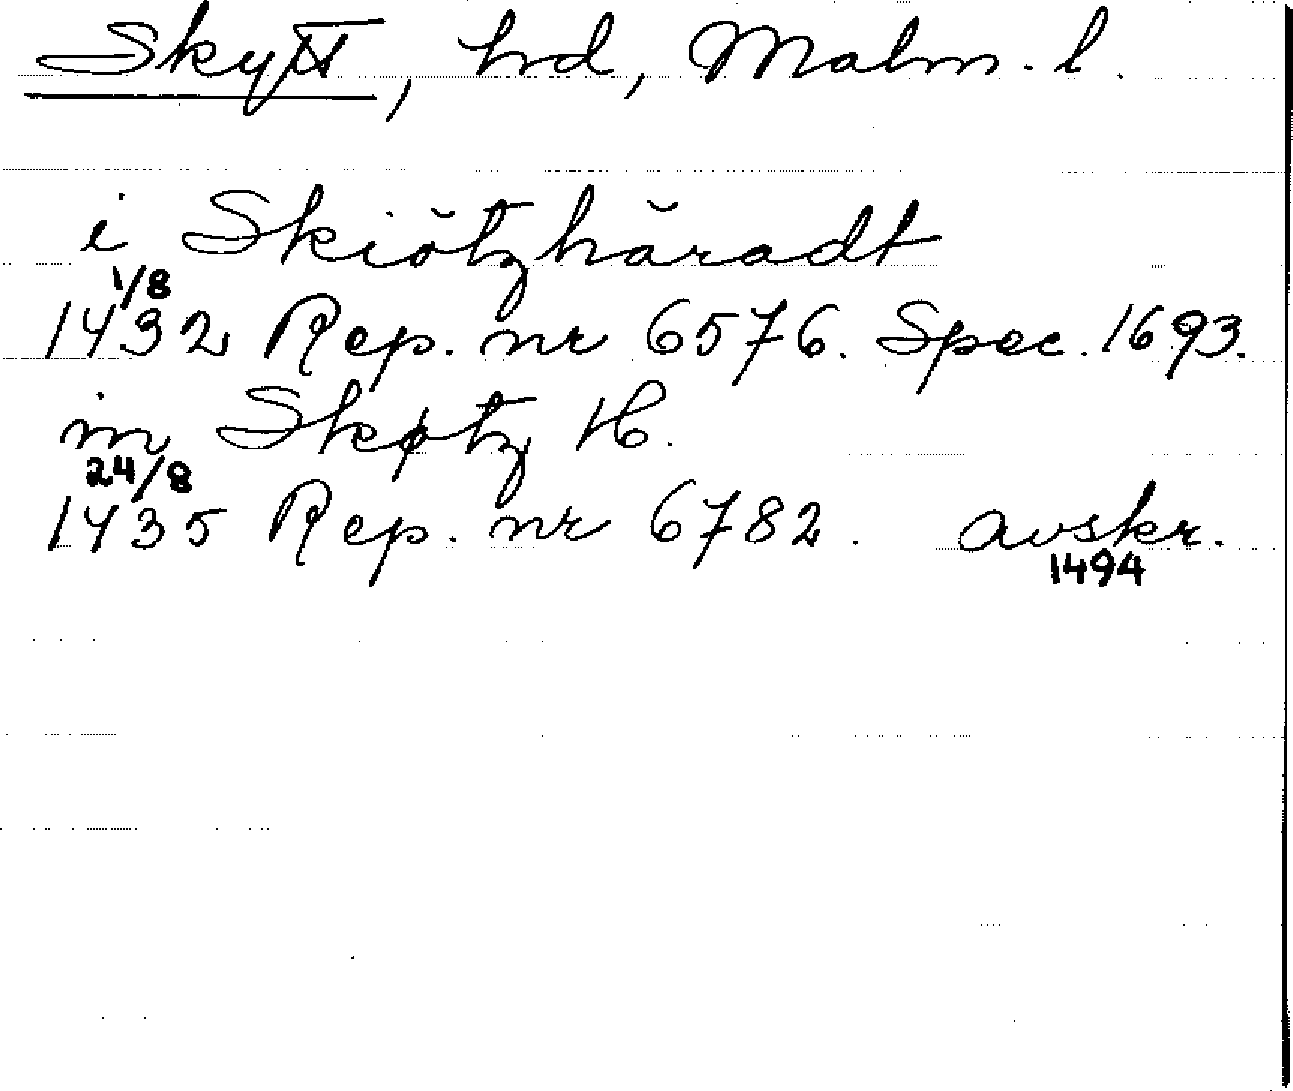 Skytt, hd, Malm. l.
i Skiŏtzhăradt
1/8
1432 Rep. nr 6576. Spec. 1693.
in Skøtz H.
24/8
1435 Rep. nr 6782. avskr.
1494